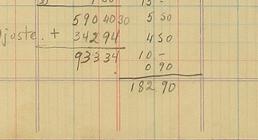 590 40 30 5 50
ajuste. + 34294 4 50
93334 10 -
0 90
182,90